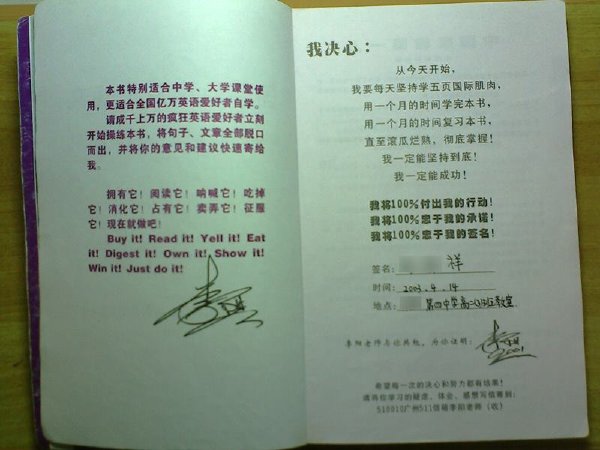 本书特别适合中学、大学课堂使
用，更适合全国亿万英语爱好者自学。
请成千上万的疯狂英语爱好者立刻
开始操练本书，将句子、文章全部脱口
而出，并将你的意见和建议快速寄给
我。
拥有它！阅读它！呐喊它！吃掉
它！消化它！占有它！卖弄它！征服
它！现在就做吧！
Buy it! Read it! Yell it! Eat
it! Digest it! Own it! Show it!
Win it! Just do it!
我决心：
从今天开始，
我要每天坚持学五页国际肌肉，
用一个月的时间学完本书，
用一个月的时间复习本书，
直至滚瓜烂熟，彻底掌握！
我一定能坚持到底！
我一定能成功！
我将100%付出我的行动！
我将100%忠于我的承诺！
我将100%忠于我的签名！
签名：祥
时间：2003.4.14
地点：第四中学高二(3)班教室
李阳老师与你共勉，为你证明：
2001
希望每一次的决心和努力都有结果！
请将你学习的疑虑、体会、感想写信寄到：
510010广州511信箱李阳老师（收）